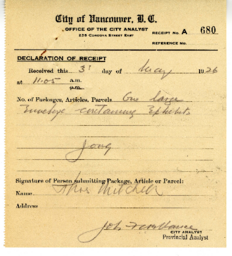 City of Vancouver, B. C.
OFFICE OF THE CITY ANALYST
236 CORDOVA STREET EAST
RECEIPT No. A 680
REFERENCE No.
DECLARATION OF RECEIPT
Received this 3rd day of May 1926
at 11.05 a.m.
p.m.
No. of Packages, Articles, Parcels One Large
Envelope containing Exhibits
Jong
Signature of Person submitting Package, Article or Parcel:
Name Mitchell
Address
CITY ANALYST
Provincial Analyst